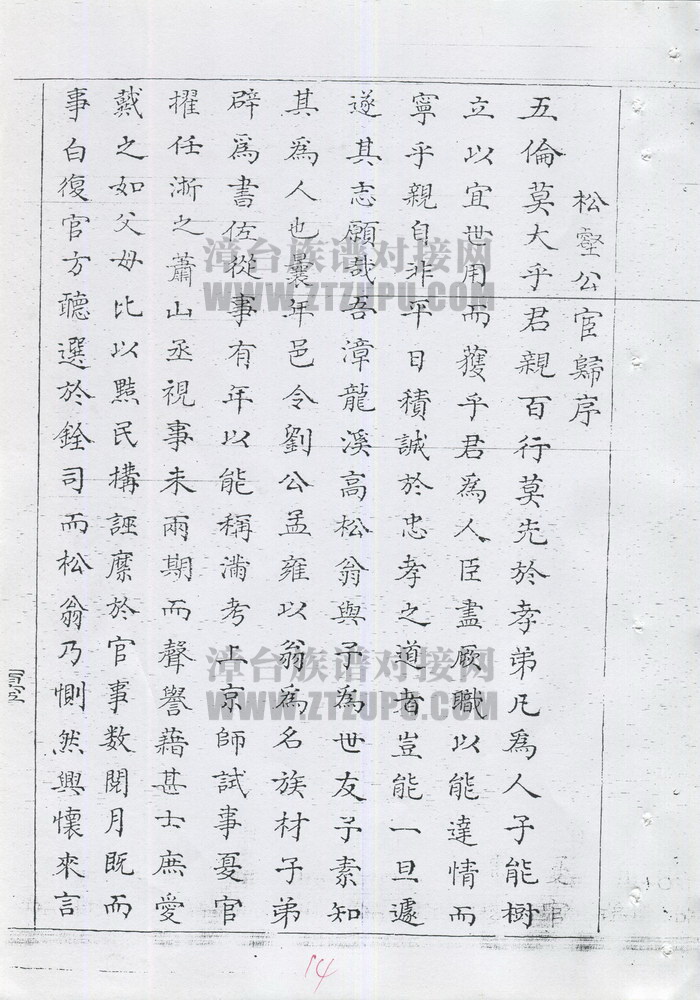 松壑公宦歸序
五倫莫大乎君親百行莫先於孝弟凡爲人子能樹
立以宜世用而獲乎君為人臣盡厥職以能達情而
寧乎親自非平日積誠於忠孝之道者豈能一旦遽
遂其志願哉吾漳龍溪高松翁與予為世友予素知
其爲人也曩年邑令劉公孟雍以翁為名族材子弟
辟爲書佐從事有年以能稱滿考上京師試事憂官
擢任浙之蕭山丞視事未兩期而聲譽藉甚士庶愛
戴之如父母比以㸃民搆誣縻於官事数閱月既而
事白復官方聽選於銓司而松翁乃惻然興懷來言
漳台族谱对接网
WWW.ZTZUPU.COM
漳台族谱对接网
WWW.ZTZUPU.COM
14